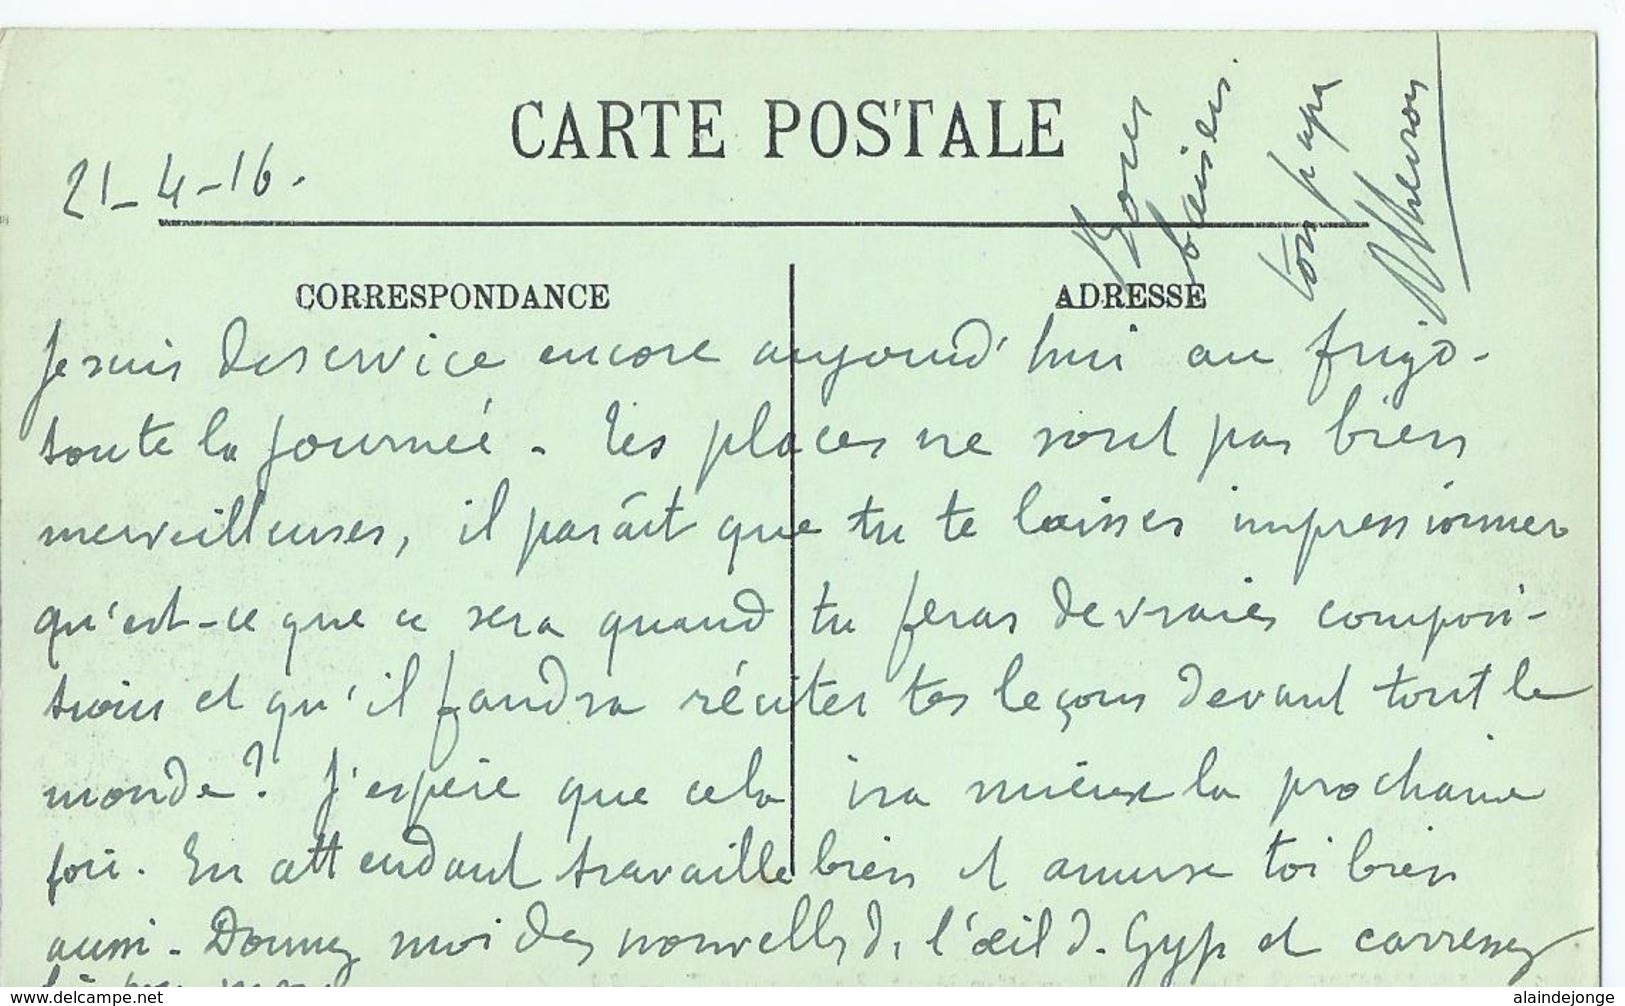 CARTE POSTALE
21-4-16.
CORRESPONDANCE
ADRESSE
Je suis de service encore aujourd'hui au frigo-
toute la journée - Tes places ne sont pas bien
merveilleuses, il paraît que tu te laisses impressionner
qu'est-ce que ce sera quand tu feras de vraies composi-
tions et qu'il faudra réciter tes leçons devant tout le
monde ? J'espère que cela ira mieux la prochaine
fois. En attendant travaille bien et amuse toi bien
aussi - Donnez moi des nouvelles d. l'œil d. Gyp et carressez
Bons
baisers
ton papa
delcampe.net
alaindejonge